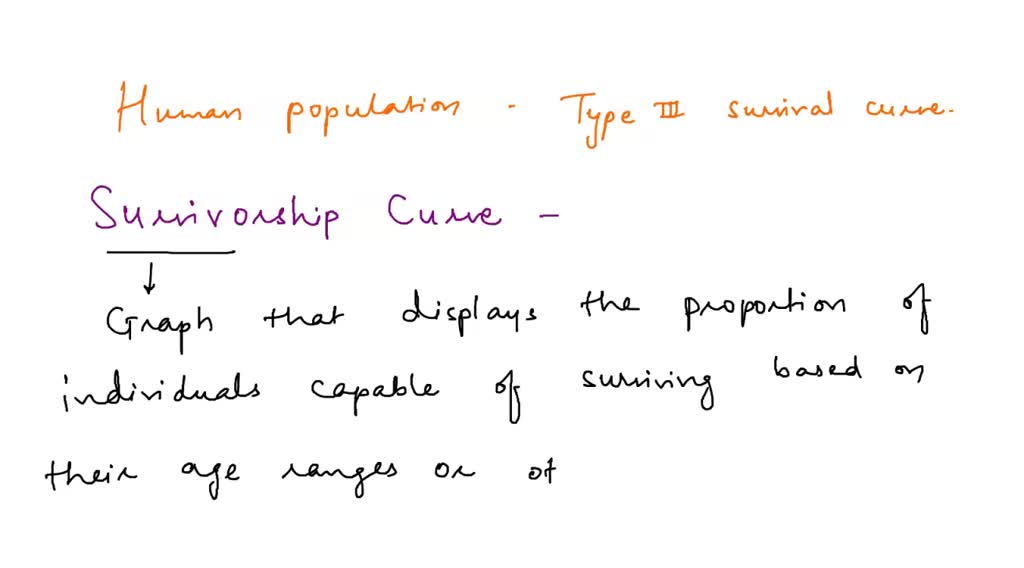 Human population - Type III survival curve.
Survivorship Curve -
Graph that displays the proportion of
individuals capable of surviving based on
their age ranges or ot